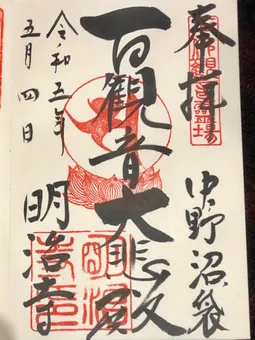 奉拝
中野沼袋
百観音大悲殿
明治寺
令和五年
五月四日